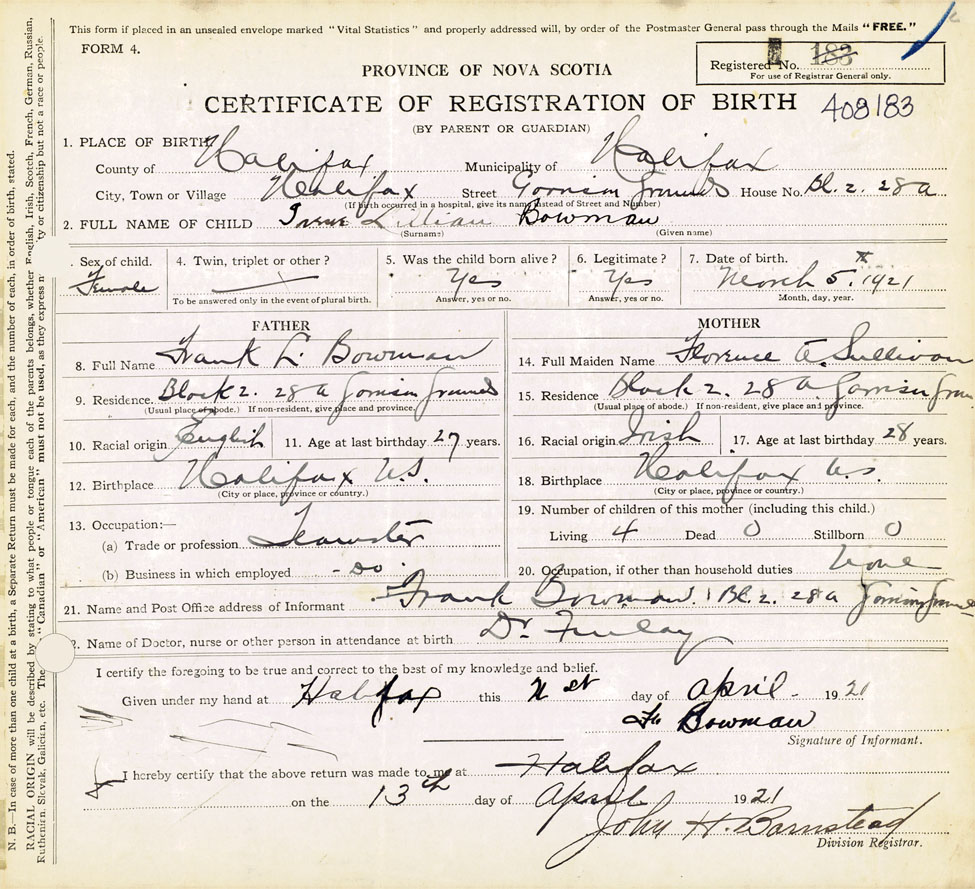 This form if placed in an unsealed envelope marked "Vital Statistics" and properly addressed will, by order of the Postmaster General pass through the Mails "FREE."
FORM 4.
Registered No. 183
For use of Registrar General only.
PROVINCE OF NOVA SCOTIA
CERTIFICATE OF REGISTRATION OF BIRTH 408183
(BY PARENT OR GUARDIAN)
1. PLACE OF BIRTH
County of Halifax Municipality of Halifax
City, Town or Village Halifax Street Garrison Grounds House No. Bl. 2. 28a
(If birth occurred in a hospital, give its name instead of Street and Number)
2. FULL NAME OF CHILD Lillian Bowman
(Surname) (Given name)
Sex of child. 4. Twin, triplet or other? 5. Was the child born alive? 6. Legitimate? 7. Date of birth.
Female Yes Yes March 5. 1921
To be answered only in the event of plural birth. Answer, yes or no. Answer, yes or no. Month, day, year.
FATHER MOTHER
8. Full Name Frank L. Bowman 14. Full Maiden Name Florence A. Sullivan
9. Residence. Block 2. 28 a Garrison Grounds 15. Residence Block 2. 28 a. Garrison
(Usual place of abode.) If non-resident, give place and province. (Usual place of abode.) If non-resident, give place and province.
10. Racial origin English 11. Age at last birthday 27 years. 16. Racial origin Irish 17. Age at last birthday 28 years.
12. Birthplace Halifax N.S. 18. Birthplace Halifax N.S.
(City or place, province or country.) (City or place, province or country.)
13. Occupation:— 19. Number of children of this mother (including this child.)
(a) Trade or profession Teamster Living 4 Dead 0 Stillborn 0
(b) Business in which employed - Do. 20. Occupation, if other than household duties None
21. Name and Post Office address of Informant Frank Bowman. Bl. 2. 28 a Garrison
2. Name of Doctor, nurse or other person in attendance at birth Dr. Finlay
I certify the foregoing to be true and correct to the best of my knowledge and belief.
Given under my hand at Halifax this day of April 1921
Bowman
Signature of Informant.
I hereby certify that the above return was made to me at Halifax
on the 13th day of April 1921
John H. Barnstead
Division Registrar.
N. B.—In case of more than one child at a birth, a Separate Return must be made for each, and the number of each, in order of birth, stated.
RACIAL ORIGIN will be described by stating to what people or tongue each of the parents belongs, whether English, Irish, Scotch, French, German, Russian,
Ruthenian, Slovak, Galician, etc. The "Canadian" or "American" must not be used, as they express ty or citizenship but not a race or people.